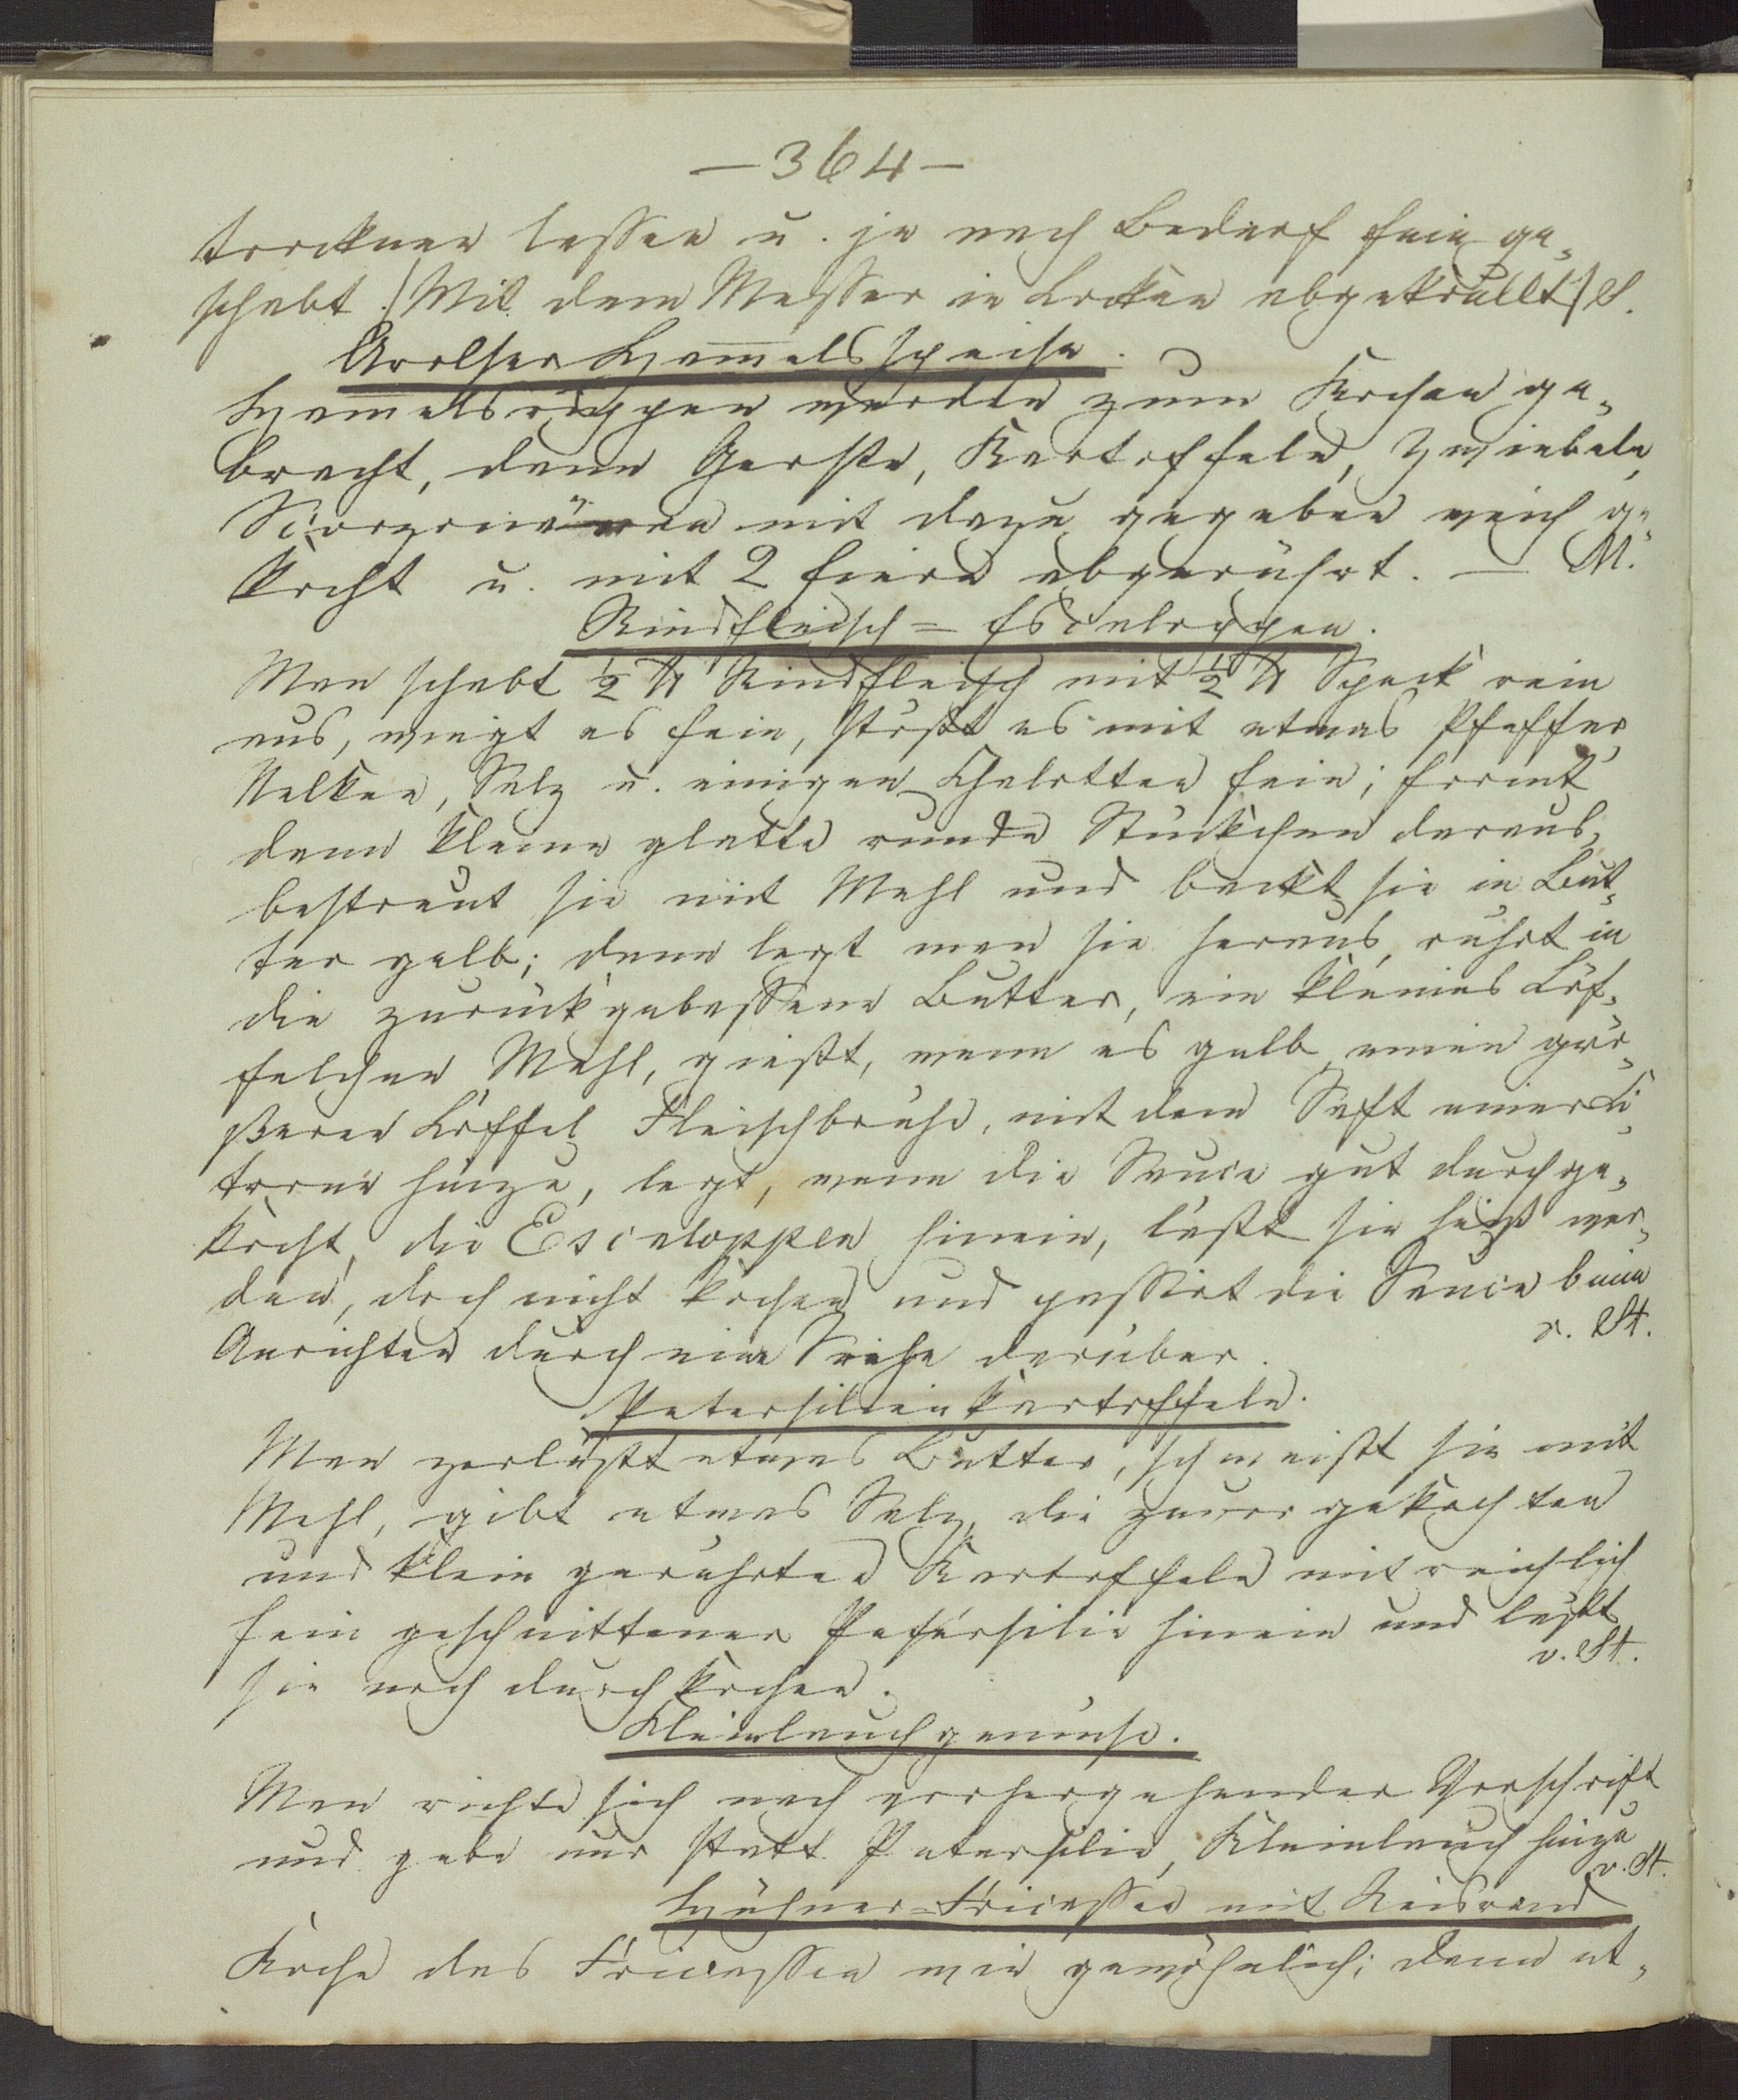 — 364 —
trocknen lassen u. je nach Bedarf fein ge„
schabt. (Mit dem Messer in Locken abgekrüllt) S.
Arolser Hammelsspeise.
Hammelsrippen werden zum Kochen ge„
bracht, dann Gerste, Kartoffeln, Zwiebeln,
mit dazu gegeben weich ge„
kocht u. mit 2 Eiern abgerührt. — M.
Rindfleisch = Escaloppen.
Man schabt ½ ℔ Rindfleisch mit ½ ℔ Speck rein
aus, wiegt es fein, stößt es mit etwas Pfeffer,
Nelken, Salz u. einigen Chalotten fein; formt
dann kleine glatte runde Stückchen daraus,
bestreut sie mit Mehl und backt sie in But„
ter gelb; dann legt man sie heraus, rührt in
die zurückgelassene Butter, ein kleines Löf„
felchen Mehl, gießt, wenn es gelb, einen grö„
ßeren Löffel Fleischbrühe, mit dem Saft einer Ci„
trone hinzu, legt, wenn die Sauce gut durchge„
kocht, die Escaloppen hinein, läßt sie heiß wer„
den, doch nicht kochen und passirt die Sauce beim
Anrichten durch eine Seihe darüber.
v. St.
Petersilienkartoffeln.
Man zerläßt etwas Butter, schweißt sie mit
Mehl, gibt etwas Salz, die zuvor gekochten
und klein gerührten Kartoffeln mit reichlich
fein geschnittener Petersilie hinein und läßt
sie noch durchkochen.
v. St.
Kleinlauchgemüse.
Man richte sich nach vorhergehender Vorschrift
und gebe nur statt Petersilie, Kleinlauch hinzu
v. St.
Hühner=Fricassee mit Reisrand
Koche das Fricassee wie gewöhnlich; dann et„